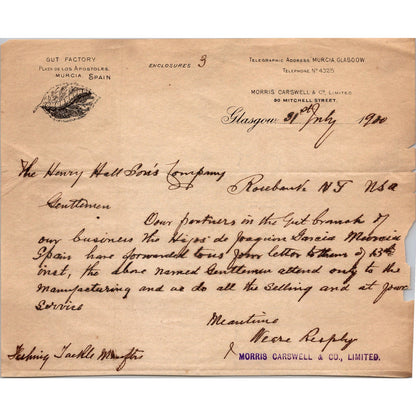 GUT FACTORY
PLAZA DE LOS APOSTOLES.
MURCIA, SPAIN
ENCLOSURES 3
TELEGRAPHIC ADDRESS, MURCIA, GLASGOW
TELEPHONE Nº 4325
MORRIS CARSWELL & Co, LIMITED.
90 MITCHELL STREET.
Glasgow 31st July 1900
The Henry Hall Son's Company
Rosebank NY USA
Gentlemen
Our partners in the Gut branch of
our business the Hijos de Joaquin Garcia Murcia
Spain have forwarded to us your letter to them of 13th
inst, the above named Gentlemen attend only to the
manufacturing and we do all the selling and at your
service
Meantime
We are Resply
MORRIS CARSWELL & CO., LIMITED.
Fishing Tackle